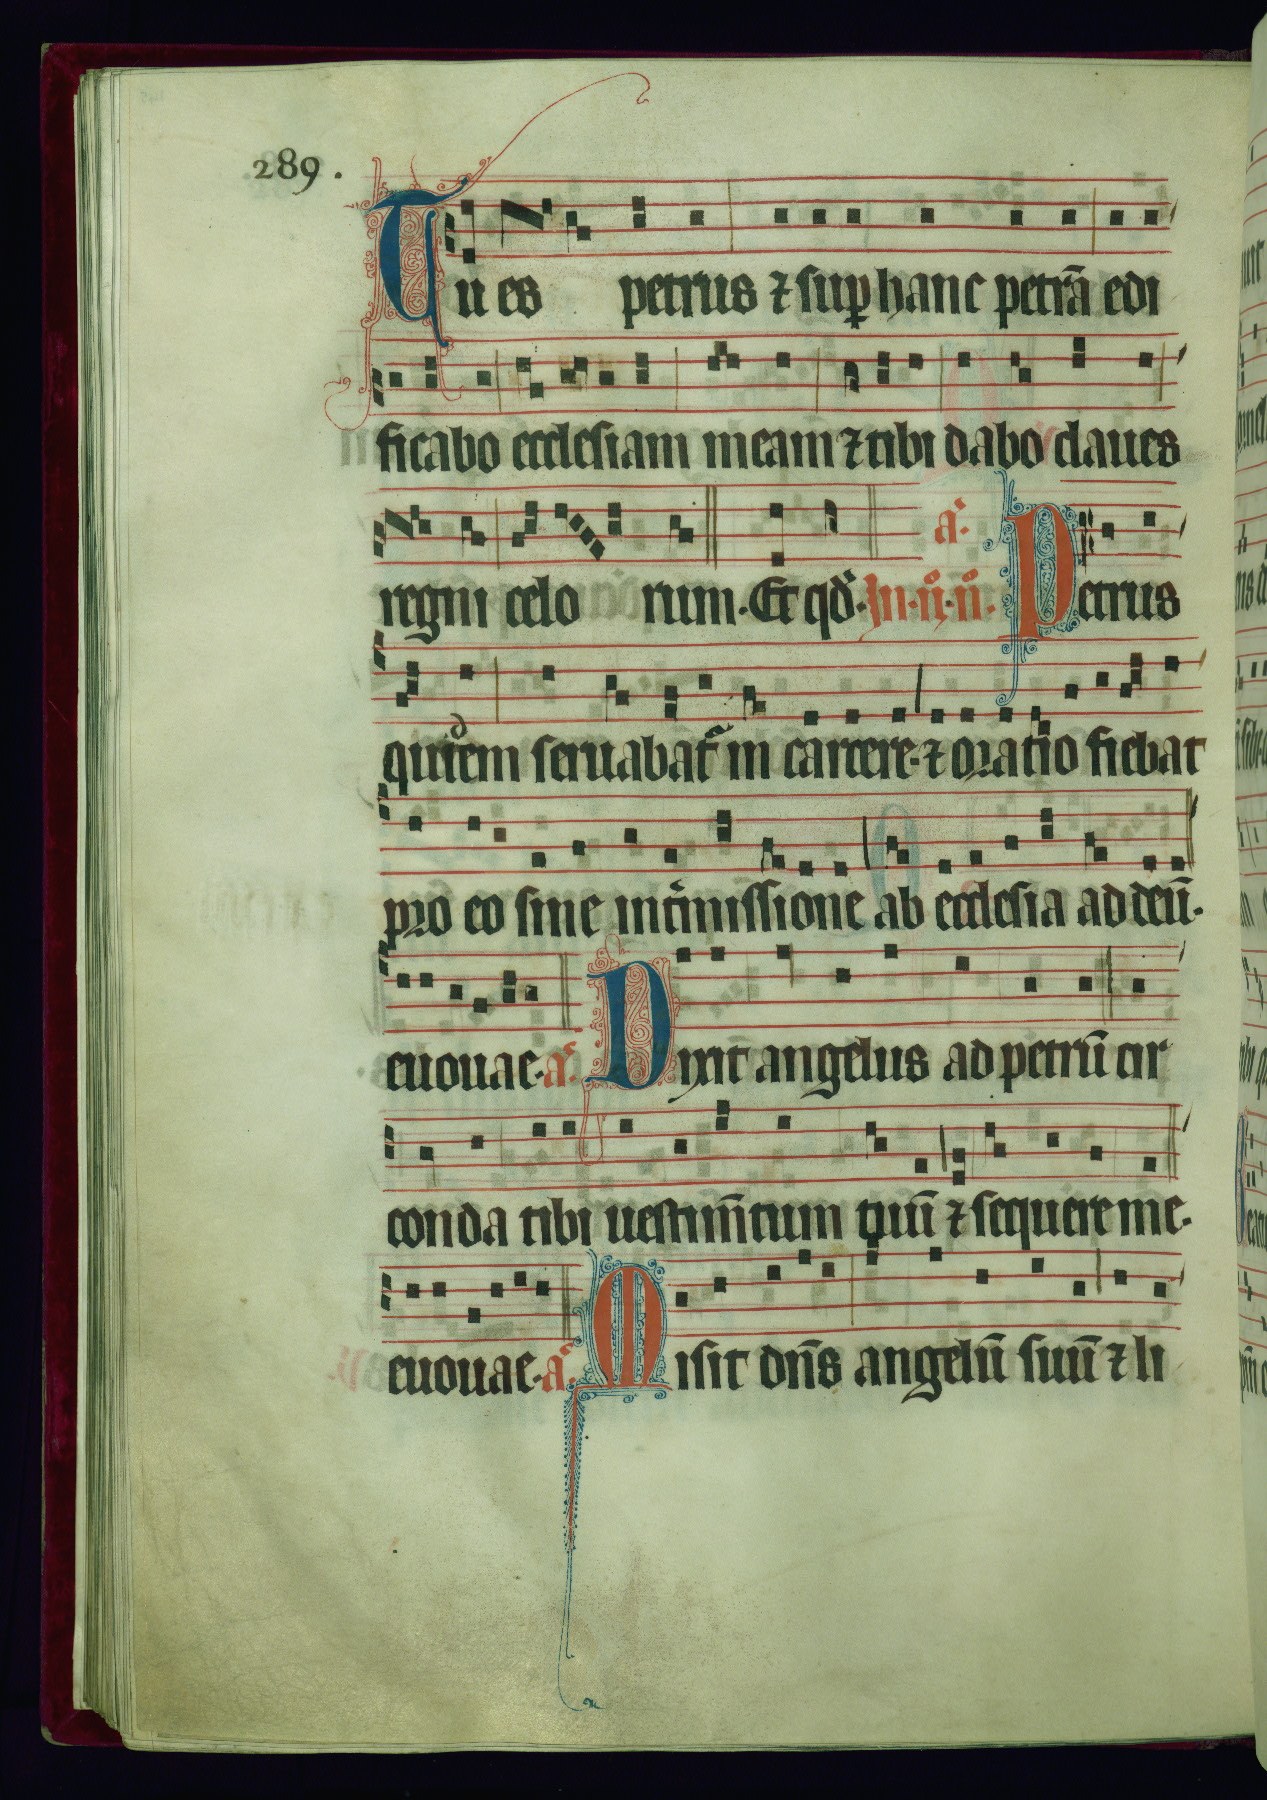 289.
Tu es petrus ⁊ suꝑ hanc petrā edi
ficabo ecclesiam meam ⁊ tibi dabo claues
regni celo rum. Et qđ. In .ij. .n. a. Petrus
quidem seruabat᷑ in carcere. ⁊ oratio fiebat
pro eo sine int̾missione ab ecclesia ad deū.
euouae. a. Dixit angelus ad petrū cir
conda tibi uestim̄tum tuū ⁊ sequere me.
euouae. a. Misit dn̄s angelū suū ⁊ li